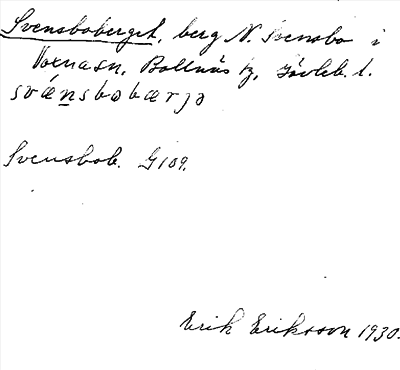 Svensboberget, berg N. Svensbo i
Voxnasn, Bollnäs tg, Gävleb. l.
svǽnsbobærjə
Svensbob. G109.
Erik Eriksson 1930.